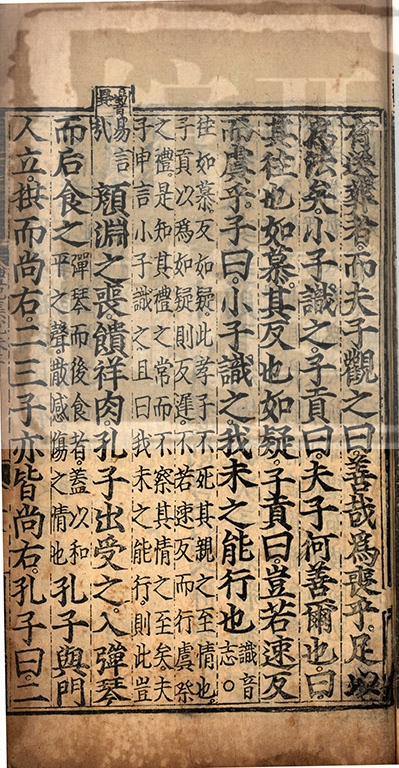 有送葬者。而夫子觀之曰。善哉爲喪乎。足以
爲法矣。小子識之。子貢曰。夫子何善爾也。曰
其徃也如慕。其反也如疑。子貢曰。豈若速反
而虞乎。子曰。小子識之。我未之能行也 識音志。
徃如慕。反如疑。此孝子不死其親之至情也。
子貢以爲如疑則反遲。不若速反而行虞祭
之禮。是知其禮之常。而不察其情之至矣。夫
子申言小子識之。且曰我未之能行。則此豈
易言哉 顏淵之喪。饋祥肉。孔子出受之。入彈琴
而后食之 彈琴而後食者。蓋以和平之聲。散感傷之情也 孔子與門
人立。拱而尚右。二三子亦皆尚右。孔子曰。二